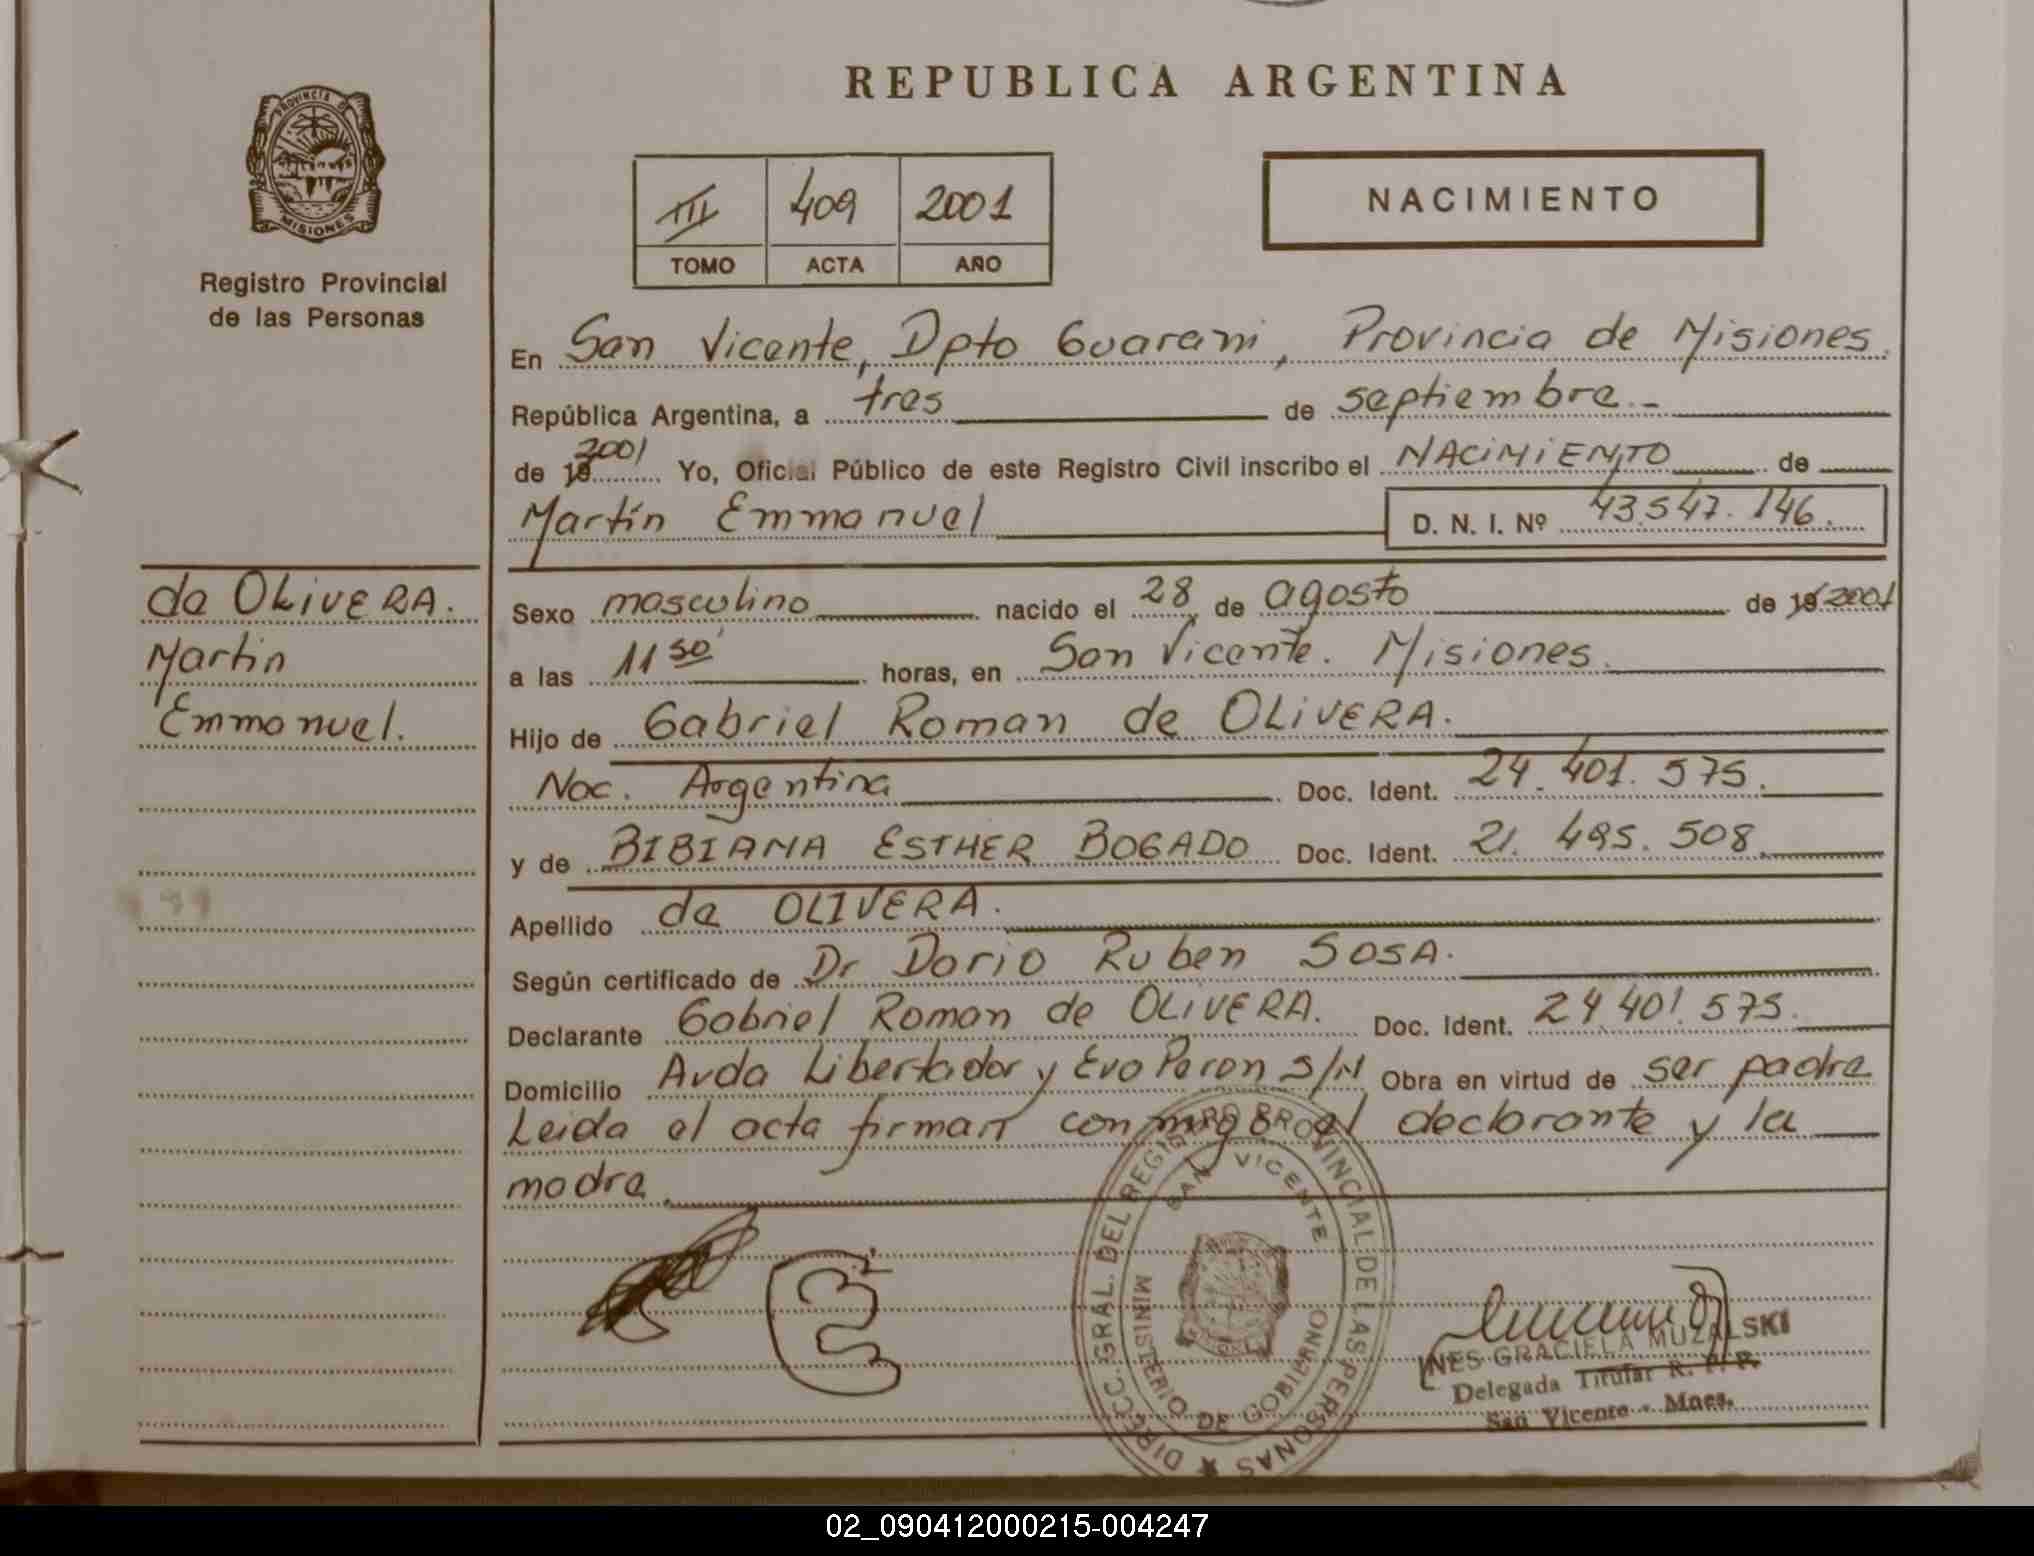 REPUBLICA ARGENTINA
PROVINCIA D
MISIONES
Registro Provincial
de las Personas
III 409 2001
TOMO ACTA AÑO
NACIMIENTO
En San Vicente, Dpto Guarani, Provincia de Misiones.
República Argentina, a tres de septiembre.-
de 19 2001 Yo, Oficial Público de este Registro Civil inscribo el NACIMIENTO de
Martín Emmanuel D. N. I. Nº 43.547.146.
de OLIVERA.
Martin
Emmanuel.
Sexo masculino nacido el 28 de agosto de 19 2001
a las 11 50' horas, en San Vicente. Misiones.
Hijo de Gabriel Roman de OLIVERA.
Nac. Argentina Doc. Ident. 24.401.575.
y de BIBIANA ESTHER BOGADO Doc. Ident. 21.495.508.
Apellido de OLIVERA.
Según certificado de Dr Dario Ruben SOSA.
Declarante Gabriel Roman de OLIVERA. Doc. Ident. 24.401.575.
Domicilio Avda Libertador y Eva Peron S/N Obra en virtud de ser padre
Leida el acta firman conmigo el declarante y la
madre.
DIRECC. GRAL. DEL REGISTRO PROVINCIAL DE LAS PERSONAS
SAN VICENTE
MINISTERIO DE GOBIERNO
INES GRACIELA MUZALSKI
Delegada Titular R. P. P.
San Vicente - Mnes.
02_090412000215-004247